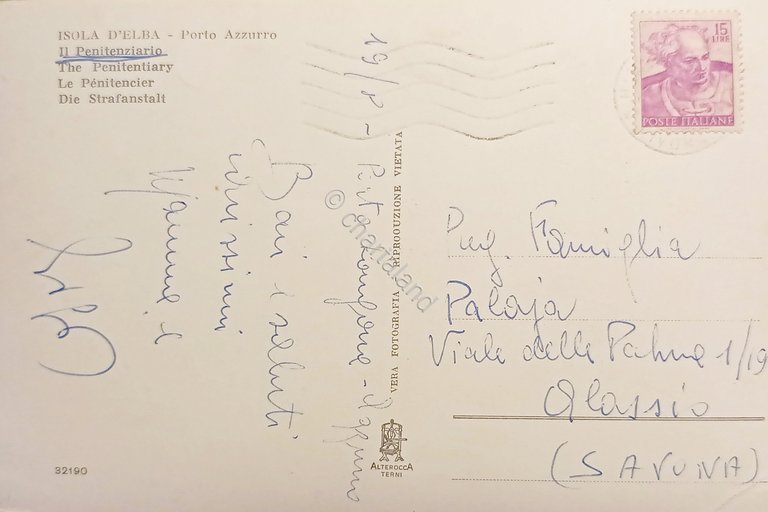 ISOLA D'ELBA - Porto Azzurro
Il Penitenziario
The Penitentiary
Le Pénitencier
Die Strafanstalt
15
LIRE
POSTE ITALIANE
19/8 - Portolongone -
Baci e saluti
carissimi
Mamma e
VERA FOTOGRAFIA RIPRODUZIONE VIETATA
© chartaland
Preg. Famiglia
Palaja
Viale delle Palme 1/19
Alassio
(SAVONA)
32190
ALTEROCCA
TERNI